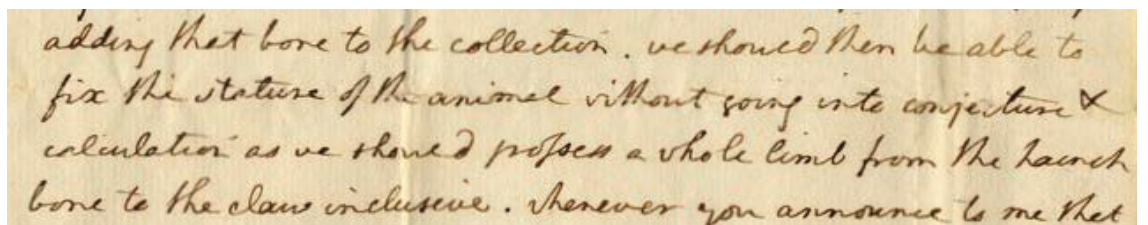 adding that bone to the collection. we should then be able to
fix the stature of the animal without going into conjecture &
calculation as we should possess a whole limb from the haunch
bone to the claw inclusive. whenever you announce to me that